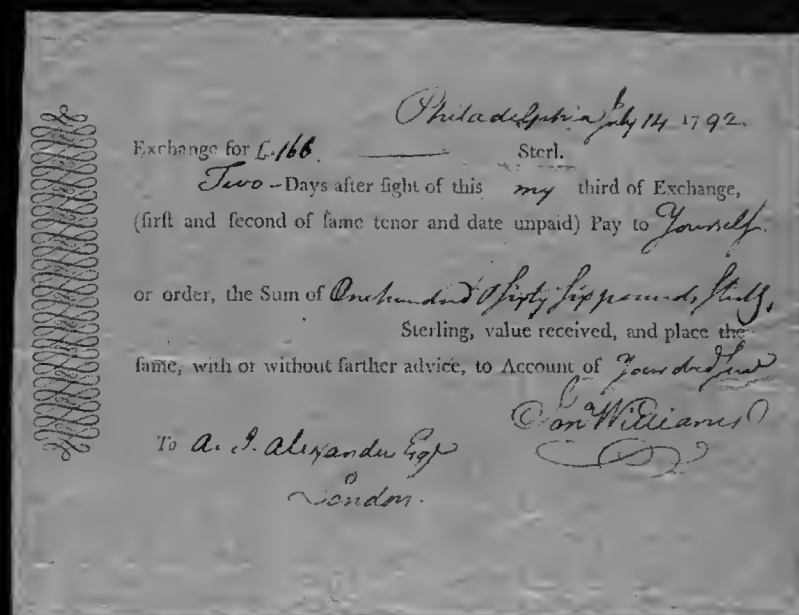 Philadelphia July 14 1792.
Exchange for £.166. Sterl.
Two - Days after ſight of this my third of Exchange,
(firſt and ſecond of ſame tenor and date unpaid) Pay to Yourself.
or order, the Sum of One hundred & Sixty Six pounds Sterlg.
Sterling, value received, and place the
ſame, with or without farther advice, to Account of Your obed Serv
Sam Williams
To A. J. Alexander Esqr
London.